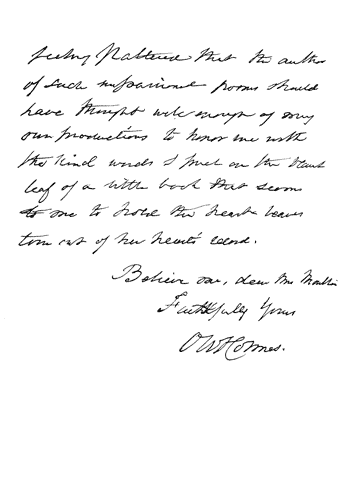 feeling flattered that the author
of such impassioned poems should
have thought well enough of my
own productions to honor me with
the kind words I find on the blank
leaf of a little book that seems
to me to hold the heart leaves
torn out of her heart's record.
Believe me, dear Mrs Moulton
Faithfully Yours
O W Holmes.